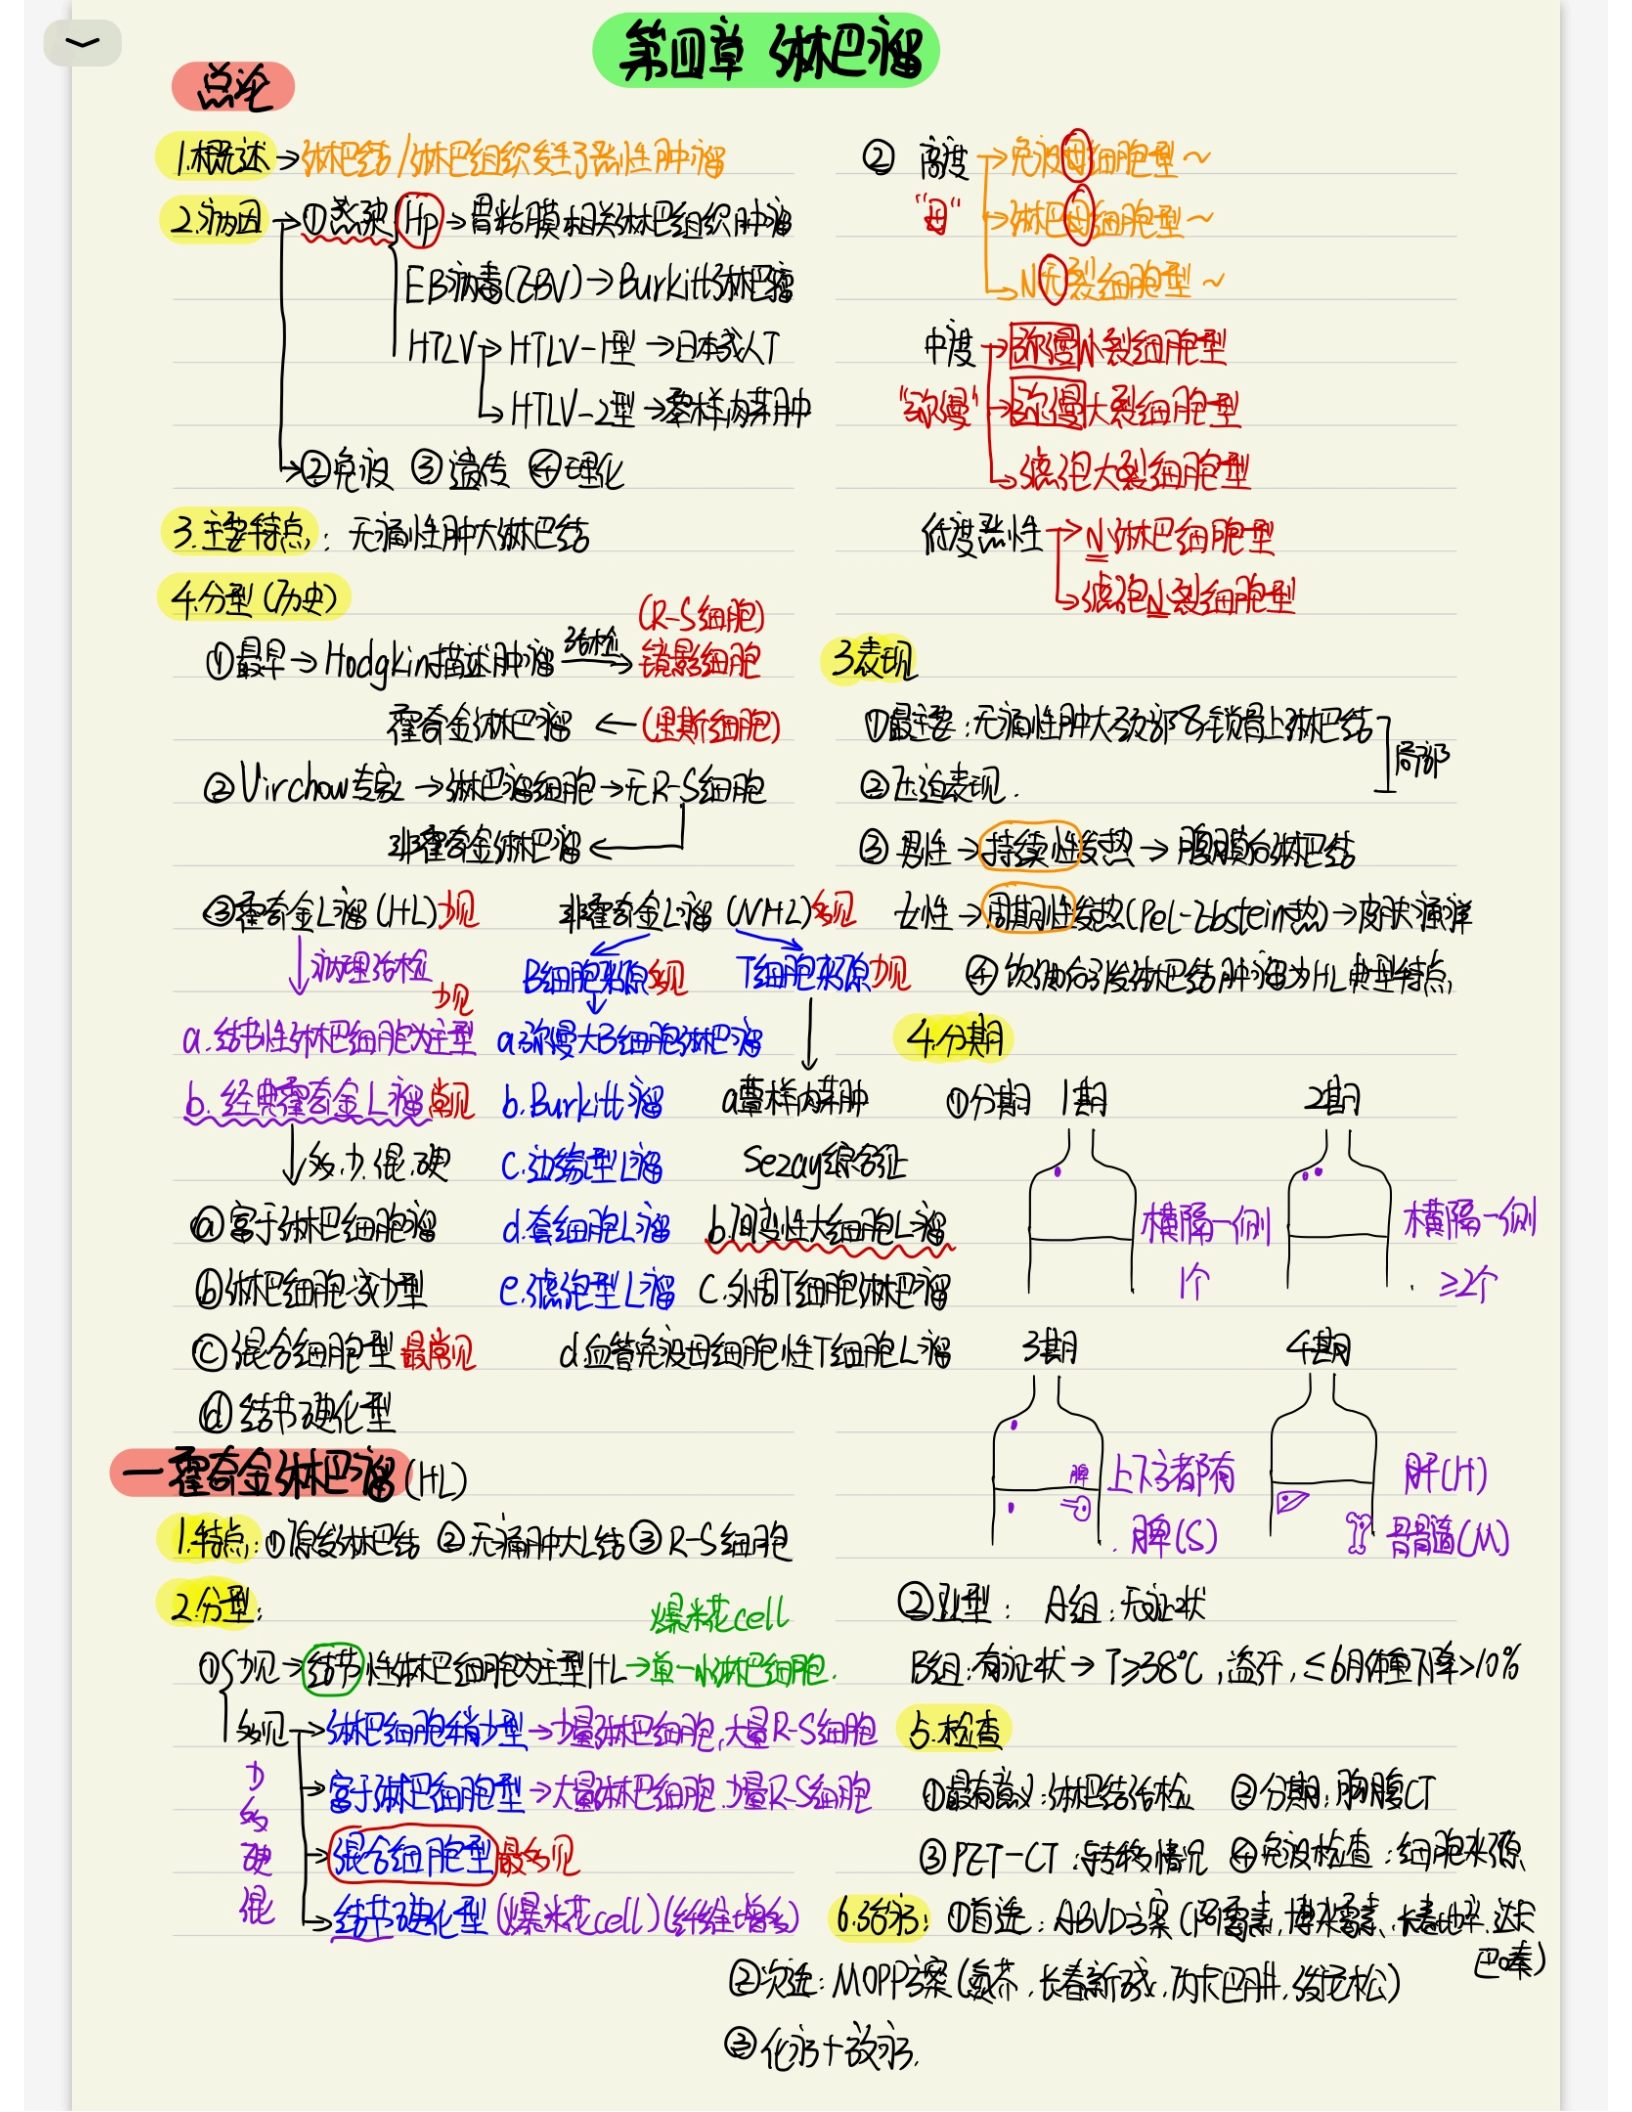 第四章 淋巴瘤
总论
1.概述→淋巴结/淋巴组织发生了恶性肿瘤
2.病因→①感染 Hp→胃粘膜相关淋巴组织肿瘤
EB病毒(EBV)→Burkitt淋巴瘤
HTLV→HTLV-1型→日本成人T
→HTLV-2型→蕈样肉芽肿
→②免疫 ③遗传 ④理化
3.主要特点: 无痛性肿大淋巴结
4.分型(历史)
(R-S细胞)
①最早→Hodgkin描述肿瘤 活检→ 镜影细胞
霍奇金淋巴瘤 ←(里斯细胞)
②Virchow专家→淋巴瘤细胞→无R-S细胞
非霍奇金淋巴瘤←
③霍奇金L瘤(HL)少见 非霍奇金L瘤(NHL)多见
↓病理活检 B细胞来源多见 T细胞来源少见
少见
a.结节性淋巴细胞为主型 a.弥漫大B细胞淋巴瘤
b.经典霍奇金L瘤常见 b.Burkitt瘤 a蕈样肉芽肿
↓多.少.混.硬 c.边缘型L瘤 Sezay综合征
ⓐ富于淋巴细胞瘤 d.套细胞L瘤 b.间变性大细胞L瘤
ⓑ淋巴细胞减少型 e.滤泡型L瘤 c.外周T细胞淋巴瘤
ⓒ混合细胞型 最常见 d.血管免疫母细胞性T细胞L瘤
ⓓ结节硬化型
一霍奇金淋巴瘤(HL)
1.特点:①原发淋巴结 ②无痛肿大L结 ③R-S细胞
2.分型:
爆米花cell
①少见→结节性淋巴细胞为主型HL→单一小淋巴细胞.
多见→淋巴细胞稍少型→少量淋巴细胞,大量R-S细胞
少 →富于淋巴细胞型→大量淋巴细胞.少量R-S细胞
多
硬 →混合细胞型 最多见
混 →结节硬化型(爆米花cell)(纤维增多)
② 高度→免疫母细胞型~
“母” →淋巴母细胞型~
→N无裂细胞型~
中度→弥漫小裂细胞型
“弥漫”→弥漫大裂细胞型
→滤泡大裂细胞型
低度恶性→N淋巴细胞型
→滤泡N裂细胞型
3表现
①最主要:无痛性肿大颈部&锁骨上淋巴结
局部
②压迫表现.
③男性→持续性发热→腹膜后淋巴结
女性→周期性发热(Pel-Ebstein热)→皮肤瘙痒
④饮酒后引发淋巴结肿瘤为HL典型特点
4.分期
①分期 1期 2期
横隔一侧 横隔一侧
1个 ≥2个
3期 4期
脾 上下方都有 肝(H)
脾(S) 骨髓(M)
②亚型: A组:无症状
B组:有症状→T≥38℃,盗汗,≤6月体重下降>10%
5.检查
①最有意义:淋巴结活检 ②分期:胸腹CT
③PET-CT:转移情况 ④免疫检查:细胞来源
6.治疗:①首选:ABVD方案(阿霉素,博来霉素、长春地辛.达卡
巴嗪)
②次选:MOPP方案(氮芥.长春新碱.丙卡巴肼.泼尼松)
③化疗+放疗.